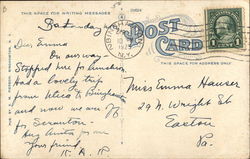 THIS SPACE FOR WRITING MESSAGES
Saturday
Dear Emma
On our way –
Stopped here for luncheon
had a lovely trip
from Utica to Binghamton
and now we are off
for Scranton
Your friend,
POST CARD
THIS SPACE FOR ADDRESS ONLY
N.Y.
Miss Emma Hauser
29 N. Wright St
Easton
Pa.